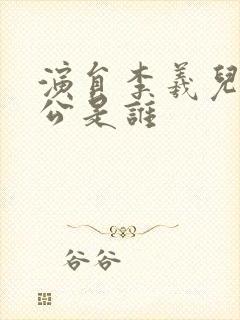 演員李羲兒
公是誰
谷谷